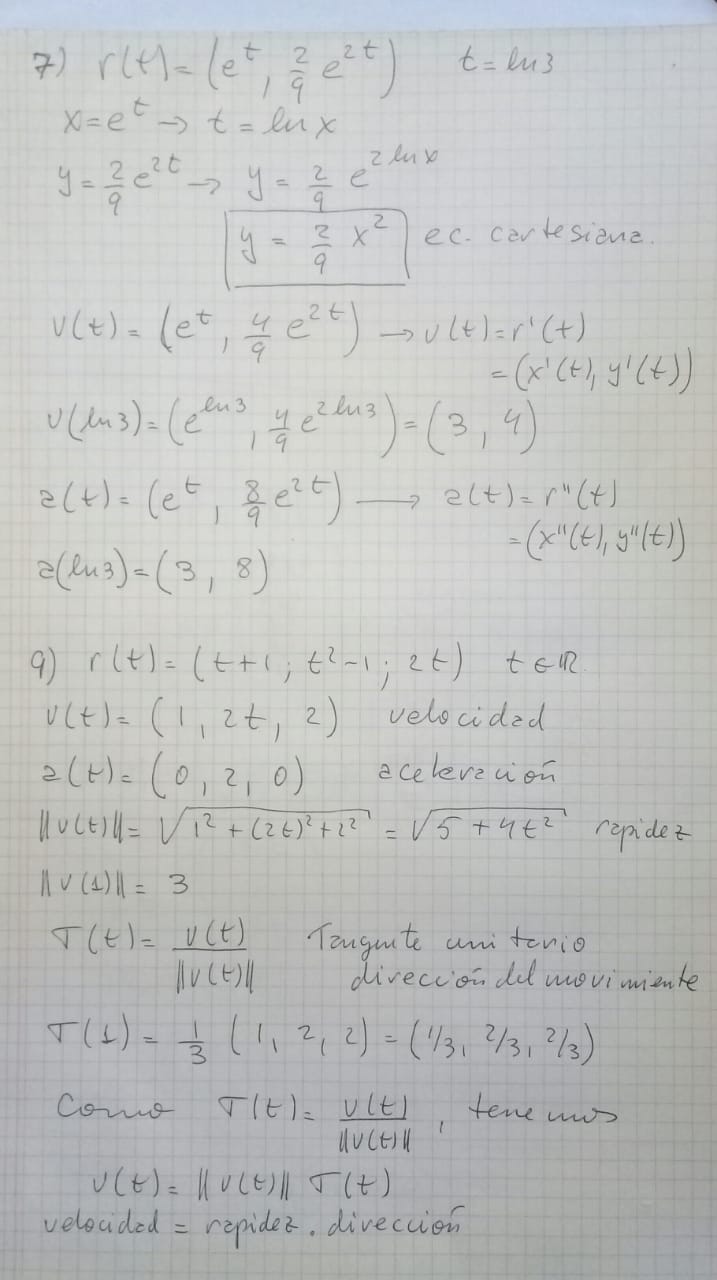 7) r(t)=(e^t, 2/9 e^{2t}) t=ln3
x=e^t → t=ln x
y=2/9 e^{2t} → y=2/9 e^{2 ln x}
y=2/9 x^2 ec. cartesiana.
v(t)=(e^t, 4/9 e^{2t}) → v(t)=r'(t)
=(x'(t), y'(t))
v(ln3)=(e^{ln3}, 4/9 e^{2ln3})=(3, 4)
a(t)=(e^t, 8/9 e^{2t}) → a(t)=r''(t)
=(x''(t), y''(t))
a(ln3)=(3, 8)
9) r(t)=(t+1; t^2-1; 2t) t∈ℝ.
v(t)=(1, 2t, 2) velocidad
a(t)=(0, 2, 0) aceleración
||v(t)||=√(1^2+(2t)^2+2^2)=√(5+4t^2) rapidez
||v(1)||=3
T(t)=v(t)/||v(t)|| Tangente unitario
dirección del movimiente
T(1)=1/3 (1, 2, 2)=(1/3, 2/3, 2/3)
Como T(t)=v(t)/||v(t)||, tenemos
v(t)=||v(t)|| T(t)
velocidad = rapidez . dirección